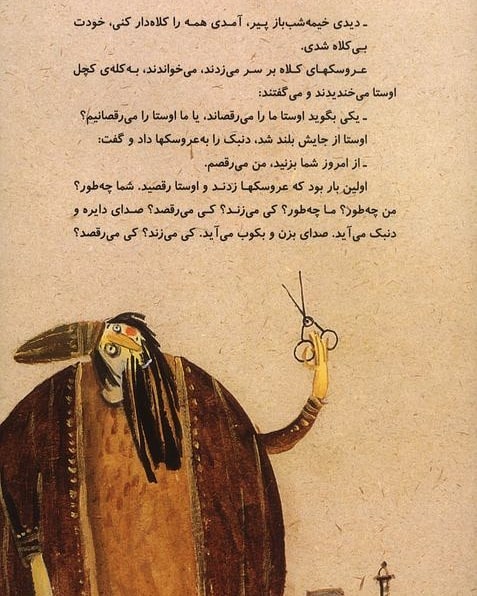 ـ دیدی خیمه‌شب‌باز پـیر، آمـدی همـه را کلاه‌دار کنی، خودت
بی‌کلاه شدی.
عـروسکهـای کـلاه بر سـر می‌زدند، می‌خواندند، بـه‌کله‌ی کچل
اوستا می‌خندیدند و می‌گفتند:
ـ یکی بگوید اوستا ما را می‌رقصاند، یا ما اوستا را می‌رقصانیم؟
اوستا از جایش بلند شد، دنبک را به‌عروسکها داد و گفت:
ـ از امروز شما بزنید، من می‌رقصم.
اولین بار بود که عروسکهـا زدنـد و اوستا رقصید. شما چه‌طور؟
من چه‌طور؟ مـا چه‌طور؟ کی می‌زنـد؟ کـی می‌رقصد؟ صـدای دایره و
دنبک می‌آید. صدای بزن و بکوب می‌آید. کی می‌زند؟ کی می‌رقصد؟